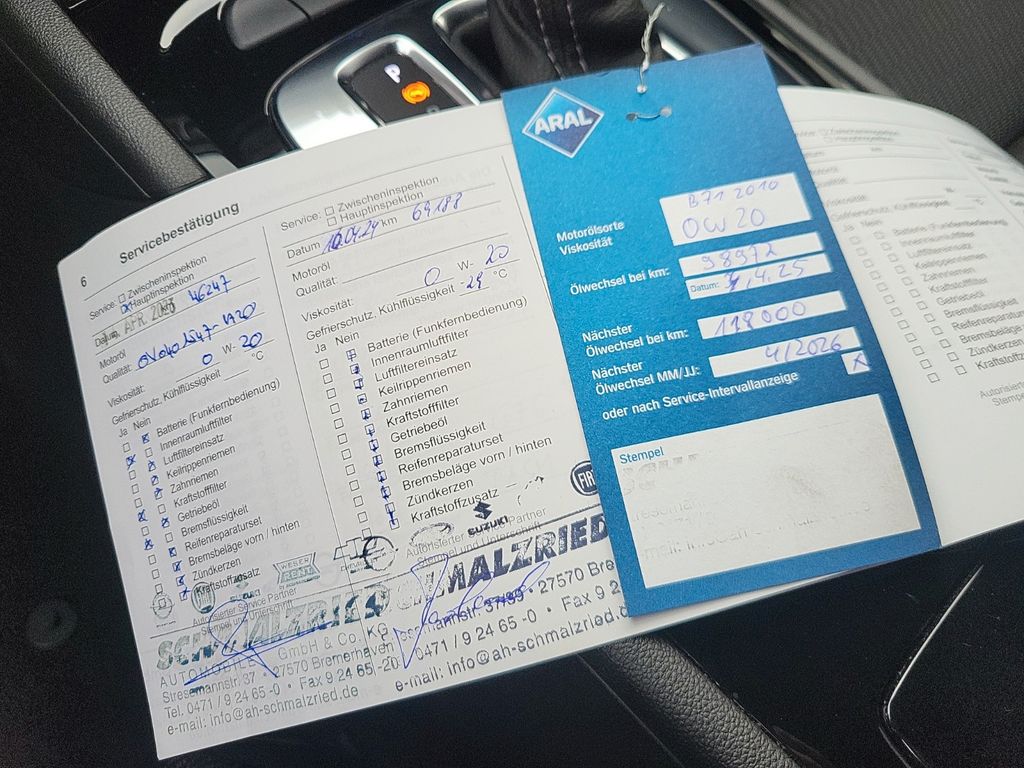 P
6
Servicebestätigung
Service: Zwischeninspektion
Hauptinspektion
APR. 46247
Motoröl
Qualität: OV0401547-
Viskosität: 0 W- 20
Gefrierschutz, Kühlflüssigkeit °C
Ja Nein
Batterie (Funkfernbedienung)
Innenraumluftfilter
Luftfiltereinsatz
Keilrippenriemen
Zahnriemen
Kraftstofffilter
Getriebeöl
Bremsflüssigkeit
Reifenreparaturset
Bremsbeläge vorn / hinten
Zündkerzen
Kraftstoffzusatz
Autorisierter Service Partner
Stempel und Unterschrift
WEBER
RENT
SCHMALZRIED
AUTOMOBILE GmbH & Co. KG
Stresemannstr. 37 • 27570 Bremerhaven
Tel. 0471 / 9 24 65 -0 • Fax 9 24 65 -20
e-mail: info@ah-schmalzried.de
Service: Zwischeninspektion
Hauptinspektion
Datum 10.04.24 km 69188
Motoröl
Qualität:
Viskosität: 0 W- 20
Gefrierschutz, Kühlflüssigkeit -29 °C
Ja Nein
Batterie (Funkfernbedienung)
Innenraumluftfilter
Luftfiltereinsatz
Keilrippenriemen
Zahnriemen
Kraftstofffilter
Getriebeöl
Bremsflüssigkeit
Reifenreparaturset
Bremsbeläge vorn / hinten
Zündkerzen
Kraftstoffzusatz
Autorisierter Service Partner
Stempel und Unterschrift
SUZUKI
FIAT
SCHMALZRIED
27570 Bre
0471 / 9 24 65 -0 • Fax 9 2
e-mail: info@ah-schmalzried.d
ARAL
Motorölsorte B71 2010
Viskosität 0W 20
Ölwechsel bei km: 98972
Datum: 1.4.25
Nächster
Ölwechsel bei km: 118000
Nächster
Ölwechsel MM/JJ: 4/2026
oder nach Service-Intervallanzeige X
Stempel
Zwischeninspektion
Hauptinspektion
Viskosität:
Gefrierschutz, Kühlflüssigkeit
Ja Nein
Batterie
Innenraumluftfilter
Luftfiltereinsatz
Keilrippenriemen
Zahnriemen
Kraftstofffilter
Getriebeöl
Bremsflüssigkeit
Reifenreparaturset
Bremsbeläge vorn
Zündkerzen
Kraftstoffzusatz